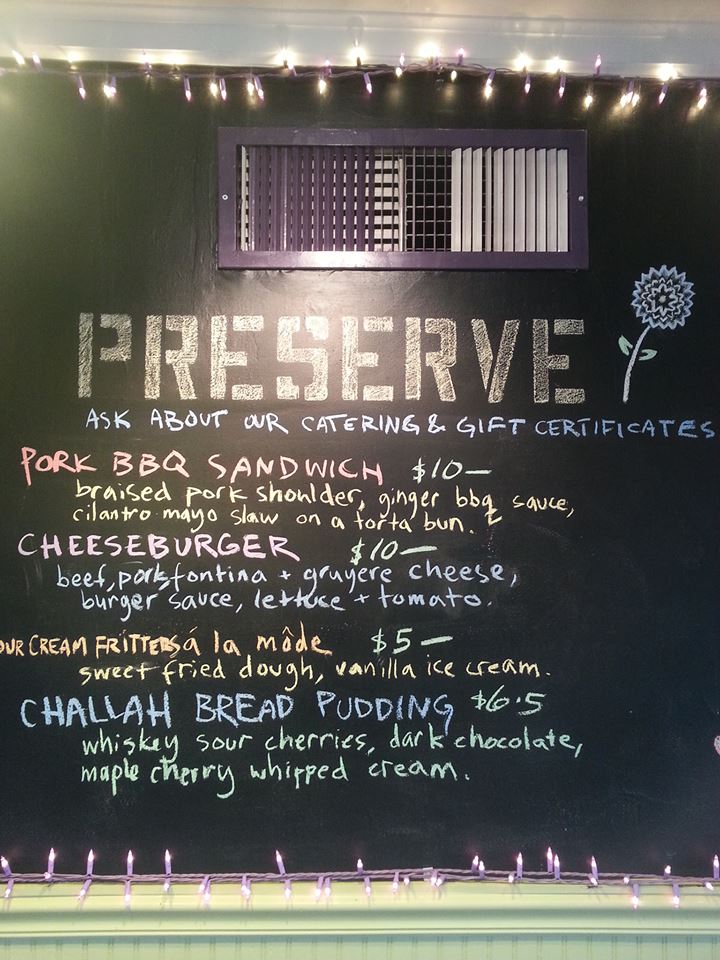 PRESERVE
ASK ABOUT OUR CATERING & GIFT CERTIFICATES
PORK BBQ SANDWICH $10—
braised pork shoulder, ginger bbq sauce,
cilantro-mayo slaw on a torta bun.
CHEESEBURGER $10—
beef, pork, fontina + gruyere cheese,
burger sauce, lettuce + tomato.
OUR CREAM FRITTERS á la môde $5—
sweet fried dough, vanilla ice cream.
CHALLAH BREAD PUDDING $6.5
whiskey sour cherries, dark chocolate,
maple cherry whipped cream.